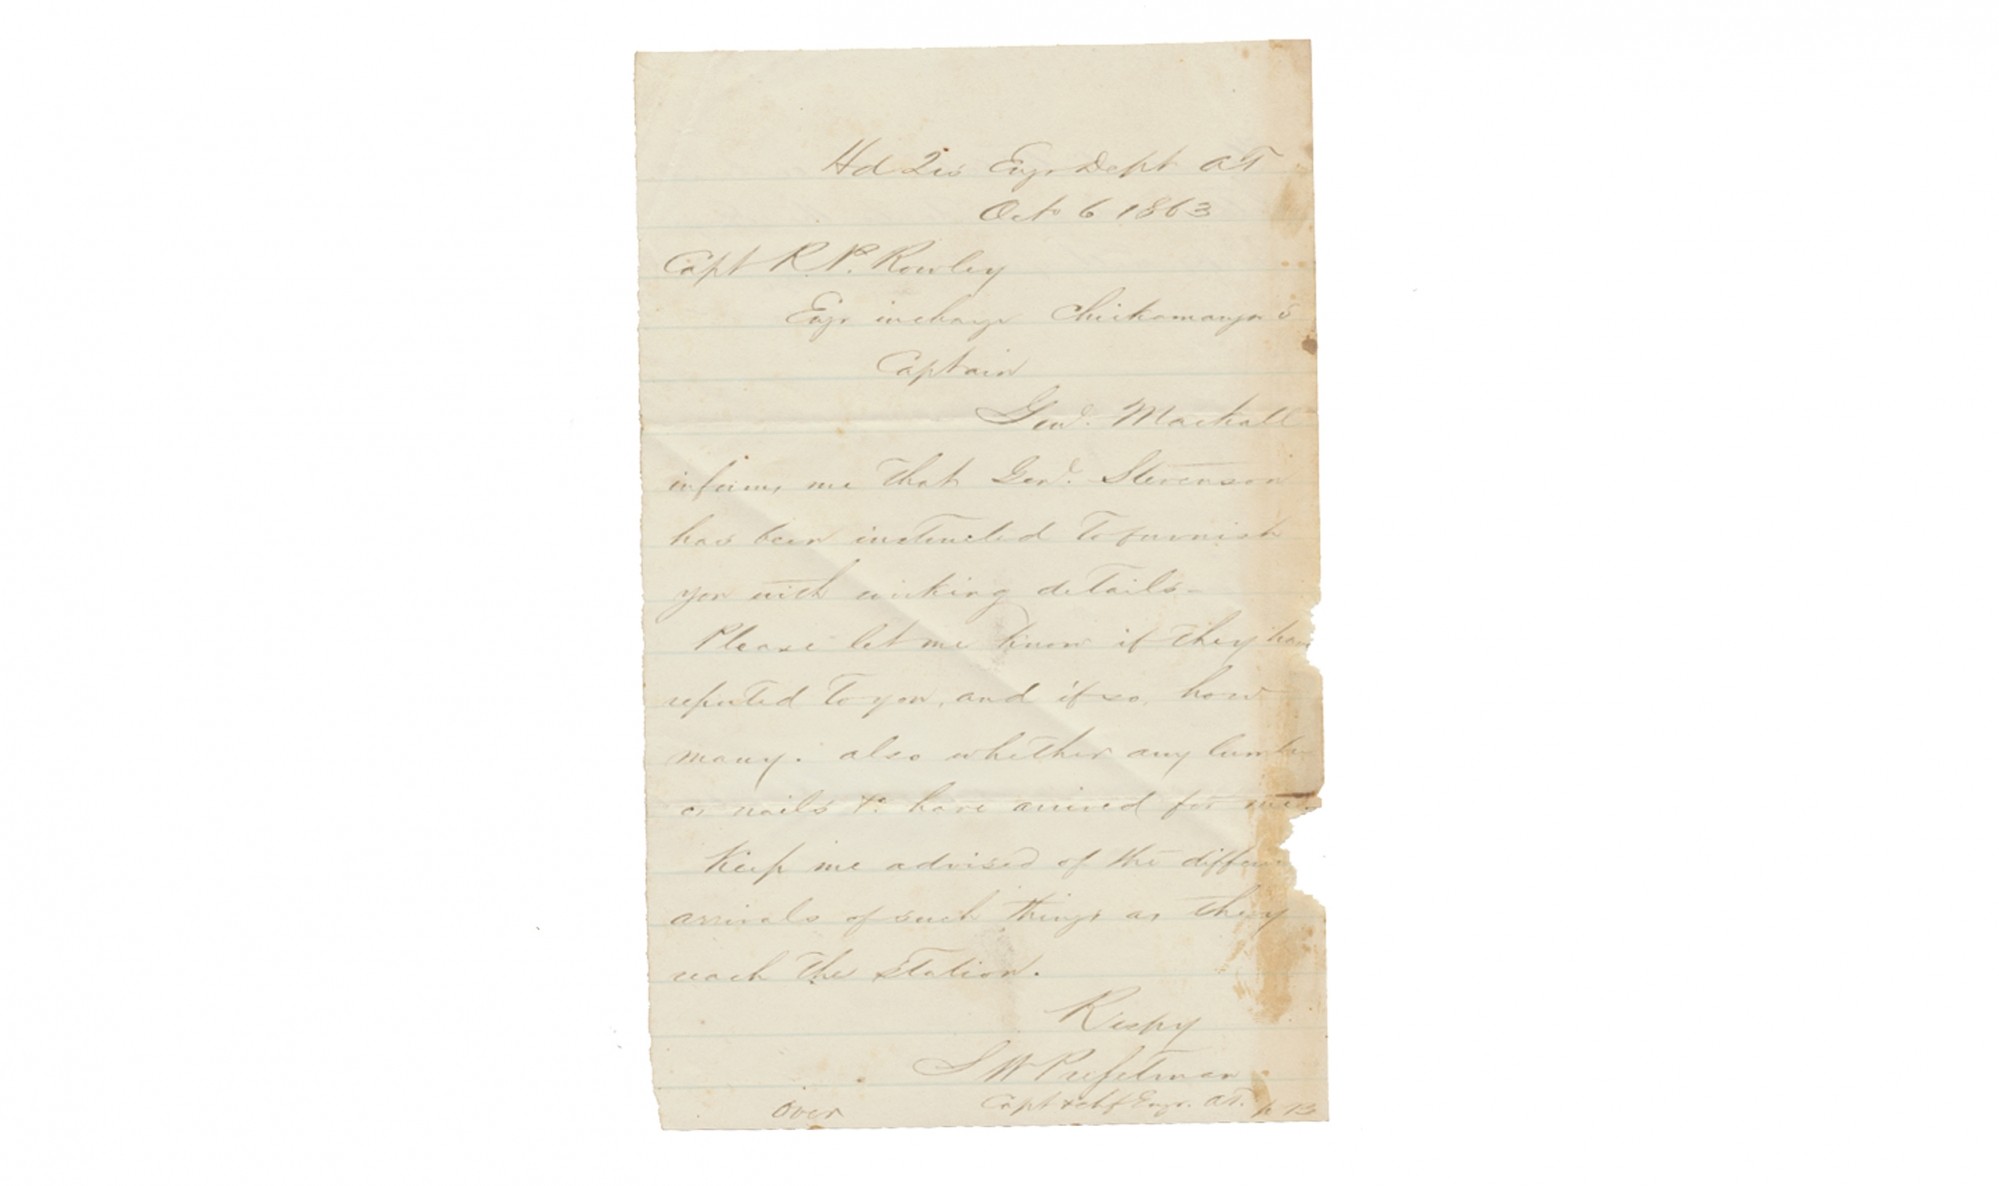 Hd Qrs Engr Dept AT
Oct 6 1863
Capt R. P. Rowley
Engr in charge Chickamauga S
Captain
Genl. Mackall
informs me that Genl. Stevenson
has been instructed to furnish
you with working details –
Please let me know if they have
reported to you, and if so, how
many. also whether any lumber
or nails &c have arrived for me.
Keep me advised of the different
arrivals of such things as they
reach the station.
Respy
S W Presstman
Capt & chf Engr. AT.
over